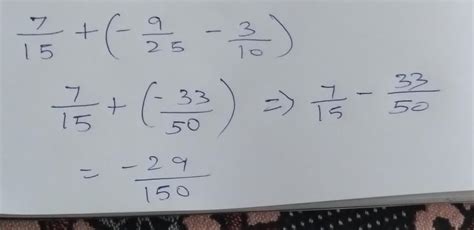 7/15 + (- 9/25 - 3/10)
7/15 + (-33/50) => 7/15 - 33/50
= -29/150